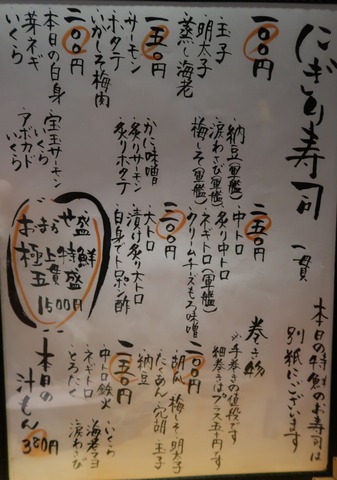 にぎり寿司
一貫
本日の特鮮のお寿司は
別紙にございます
一〇〇円
玉子
明太子
蒸し海老
納豆(軍艦)
涙わさび(軍艦)
梅しそ(軍艦)
一五〇円
サーモン
ホタテ
いかしそ梅肉
かに味噌
炙りサーモン
炙りホタテ
二〇〇円
本日の白身
芽ネギ
いくら
宝玉サーモン
いくら
アボカド
いくら
二五〇円
中トロ
炙り中トロ
ネギトロ(軍艦)
クリームチーズもろ味噌
三〇〇円
大トロ
漬け炙り大トロ
白身イトロポン酢
おまかせ盛
極上特鮮
五貫盛
1500円
巻き物
※手巻きの値段です
細巻きはプラス五十円です
二〇〇円
胡瓜 梅しそ 明太子
たくあん 穴胡 玉子
納豆
二五〇円
中トロ鉄火
ネギトロ
とろたく
いくら
海老マヨ
涙わさび
本日の
汁もん
380円